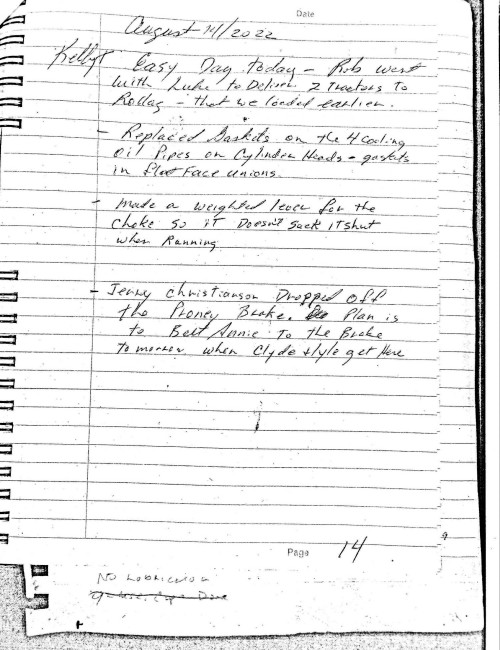 Date
August 14/2022
KellyT Easy Day Today - Rob went
with Luke to Deliver 2 Tractors To
Rollag - that we loaded earlier.
- Replaced Gaskets on the 4 Cooling
oil Pipes on Cylinder Heads - gaskets
in flat Face unions.
- made a weighted lever for the
choke so iT Doesn't Suck iT shut
when Running
- Jerry Christianson Dropped off
the Proney Brake. Plan is
to Belt Annie To the Brake
tomorrow when Clyde + Lyle get Here
Page 14
NO LUBRICATION
Done